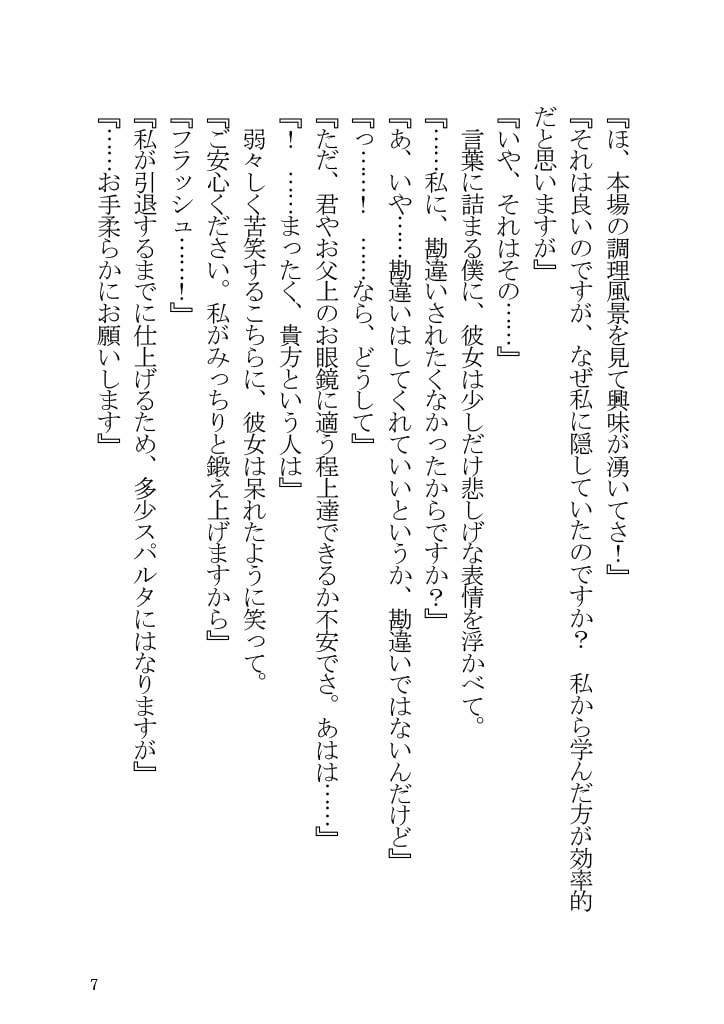 『ほ、本場の調理風景を見て興味が湧いてさ！』
『それは良いのですが、なぜ私に隠していたのですか？　私から学んだ方が効率的
だと思いますが』
『いや、それはその……』
　言葉に詰まる僕に、彼女は少しだけ悲しげな表情を浮かべて。
『……私に、勘違いされたくなかったからですか？』
『あ、いや……勘違いはしてくれていいというか、勘違いではないんだけど』
『っ……！　……なら、どうして』
『ただ、君やお父上のお眼鏡に適う程上達できるか不安でさ。あはは……』
『！　……まったく、貴方という人は』
　弱々しく苦笑するこちらに、彼女は呆れたように笑って。
『ご安心ください。私がみっちりと鍛え上げますから』
『フラッシュ……！』
『私が引退するまでに仕上げるため、多少スパルタにはなりますが』
『……お手柔らかにお願いします』
7